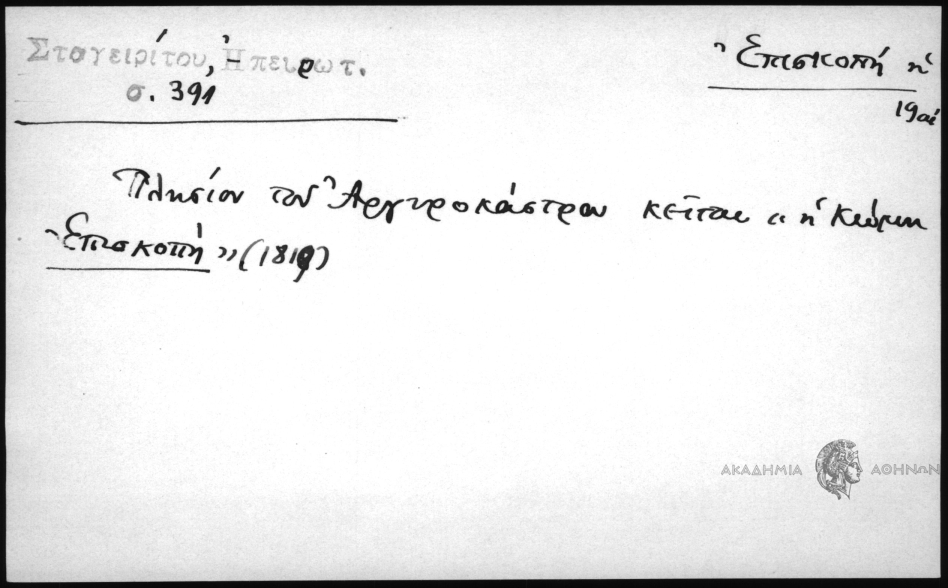 Σταγειρίτου, Ἠπειρωτ.
σ. 391
Ἐπισκοπή ἡ
19αἰ
Πλησίον τοῦ Ἀργυροκάστρου κεῖται „ ἡ κώμη
Ἐπισκοπή „ (1819)
ΑΚΑΔΗΜΙΑ ΑΘΗΝΩΝ